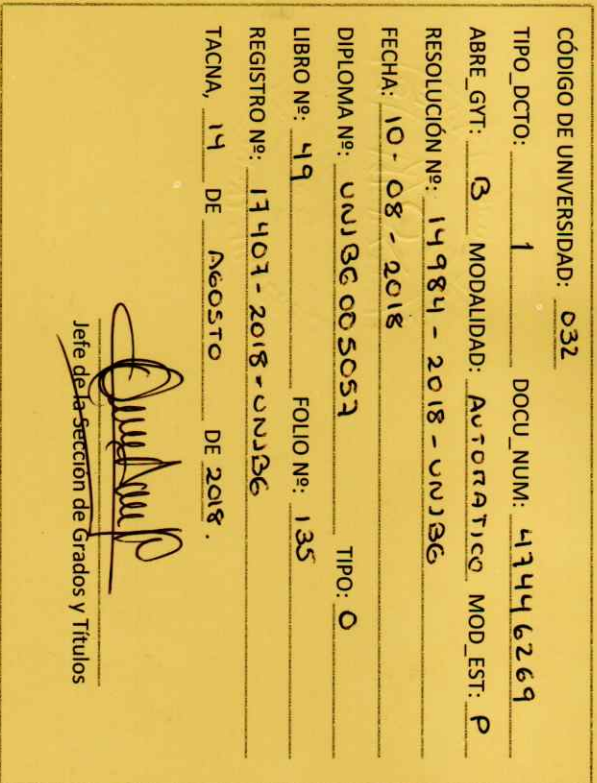 CÓDIGO DE UNIVERSIDAD: 032
TIPO_DCTO: 1 DOCU_NUM: 47446269
ABRE_GYT: B MODALIDAD: AUTOMATICO MOD_EST: P
RESOLUCIÓN Nº: 14984 - 2018 - UNJBG
FECHA: 10 - 08 - 2018
DIPLOMA Nº: UNJBG005057 TIPO: O
LIBRO Nº: 49 FOLIO Nº: 135
REGISTRO Nº: 17407 - 2018 - UNJBG
TACNA, 14 DE AGOSTO DE 2018.
Jefe de la Sección de Grados y Títulos